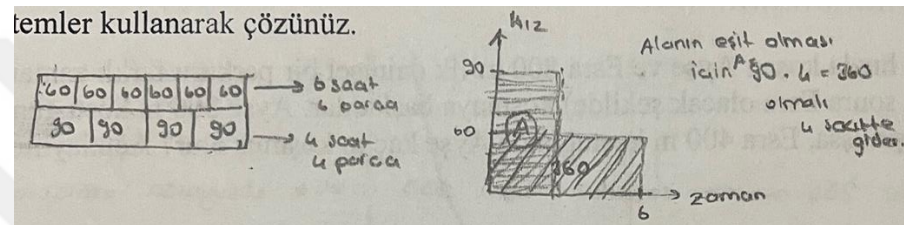 temler kullanarak çözünüz.
60 60 60 60 60 60
6 saat
6 parça
90 90 90 90
4 saat
4 parça
Hız
90
60
A
360
6
zaman
Alanın eşit olması
için A 90. 4 = 360
olmalı
4 saatte
gider.